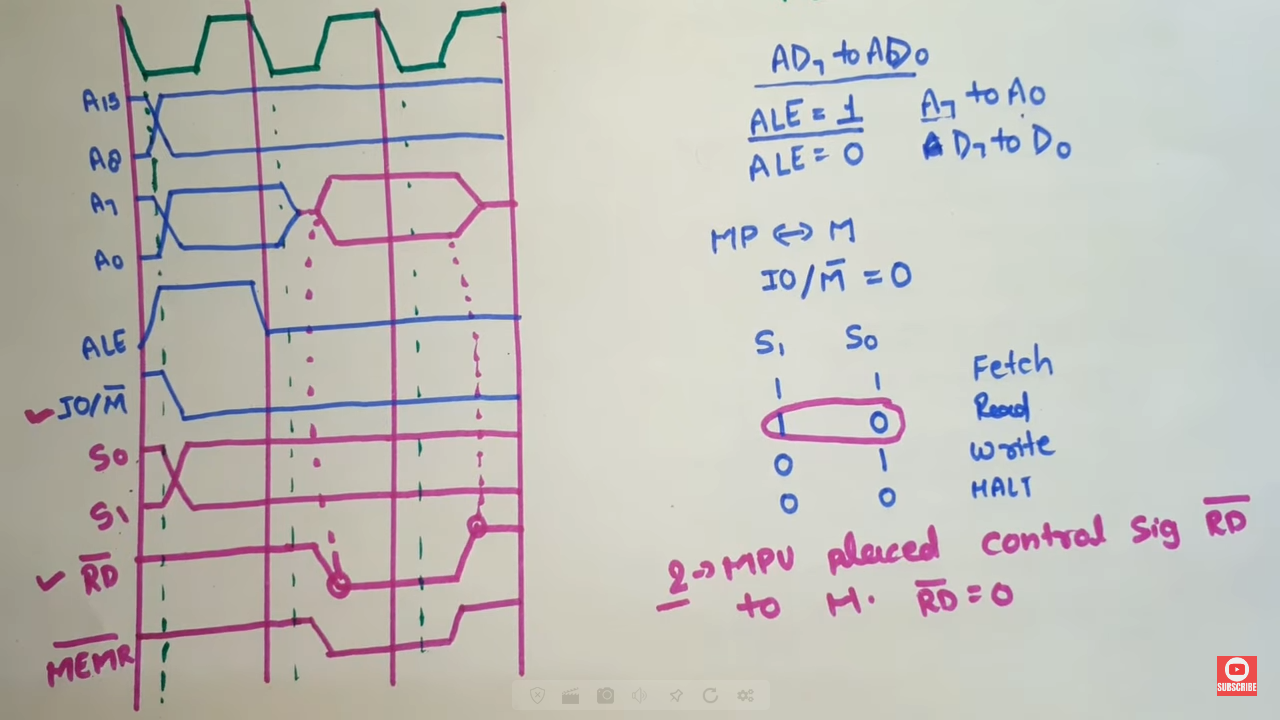 A15
A8
A7
A0
ALE
IO/M̅
S0
S1
R̅D̅
M̅E̅M̅R̅
AD7 to AD0
ALE = 1 A7 to A0
ALE = 0 D7 to D0
MP ↔ M
IO/M̅ = 0
S1 S0
1 1 Fetch
1 0 Read
0 1 Write
0 0 HALT
2→ MPU placed control Sig R̅D̅
to M. R̅D̅ = 0
SUBSCRIBE